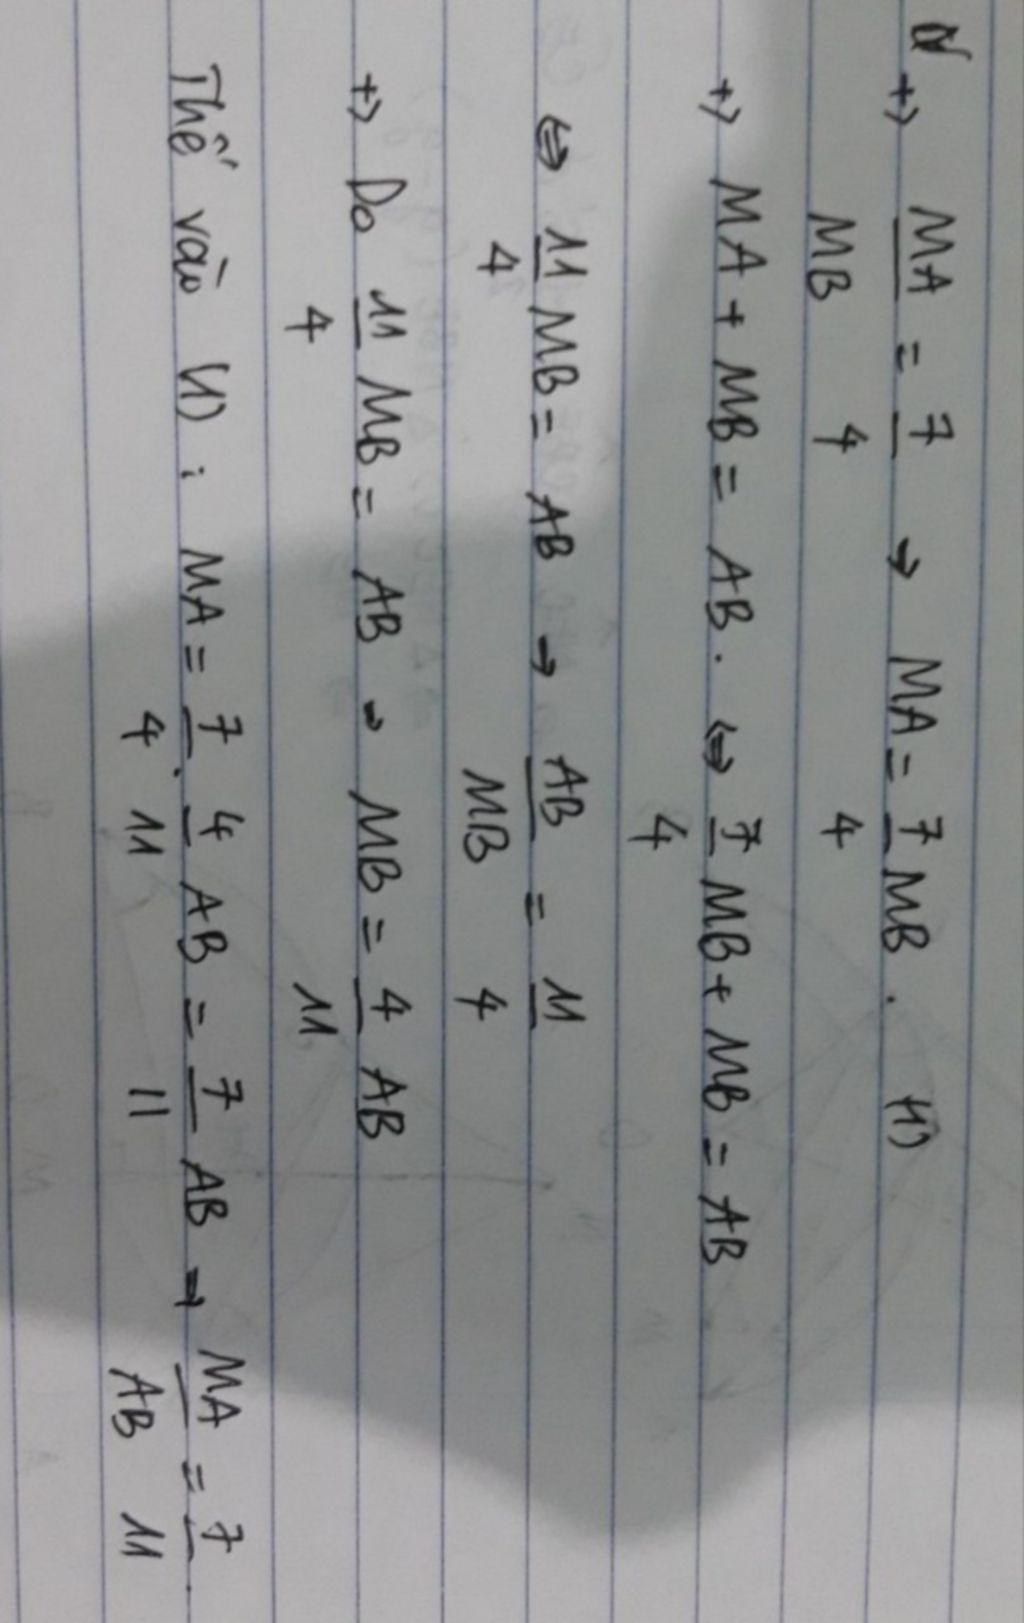 +) MA/MB = 7/4 → MA = 7/4 MB. (1)
+) MA + MB = AB. ⇔ 7/4 MB + MB = AB
⇔ 11/4 MB = AB → AB/MB = 11/4
+) Do 11/4 MB = AB → MB = 4/11 AB
Thế vào (1) : MA = 7/4 . 4/11 AB = 7/11 AB → MA/AB = 7/11.